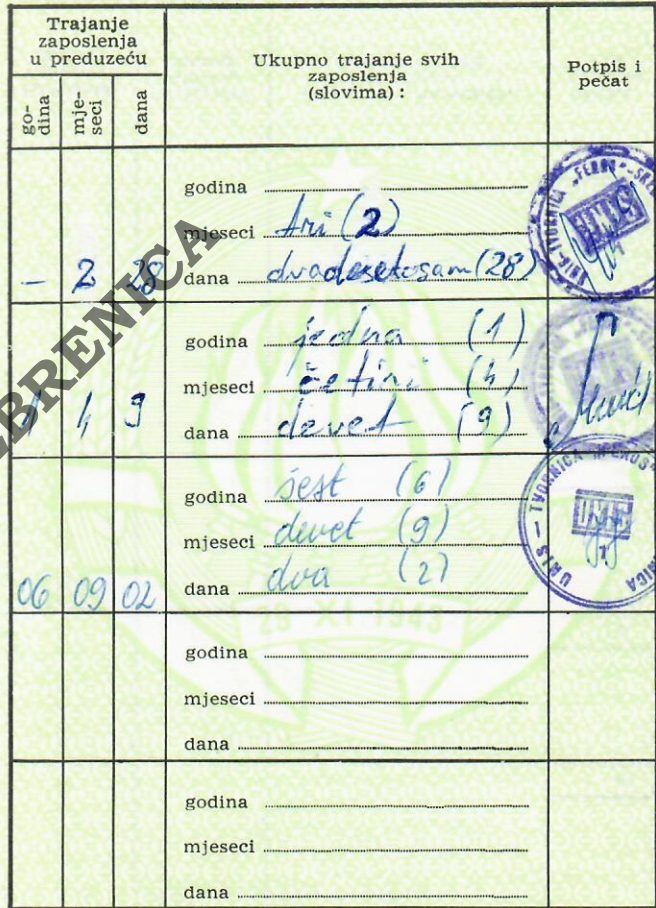 Trajanje zaposlenja u preduzeću
Ukupno trajanje svih zaposlenja (slovima) :
Potpis i pečat
go-dina
mje-seci
dana
godina
mjeseci tri (2)
dana dvadesetosam (28)
– 2 28
godina jedna (1)
mjeseci četiri (4)
dana devet (9)
1 4 9
godina šest (6)
mjeseci devet (9)
dana dva (2)
06 09 02
godina
mjeseci
dana
godina
mjeseci
dana
29 XI 1943
UNIS – TVORNICA "FEROS"
UNIS